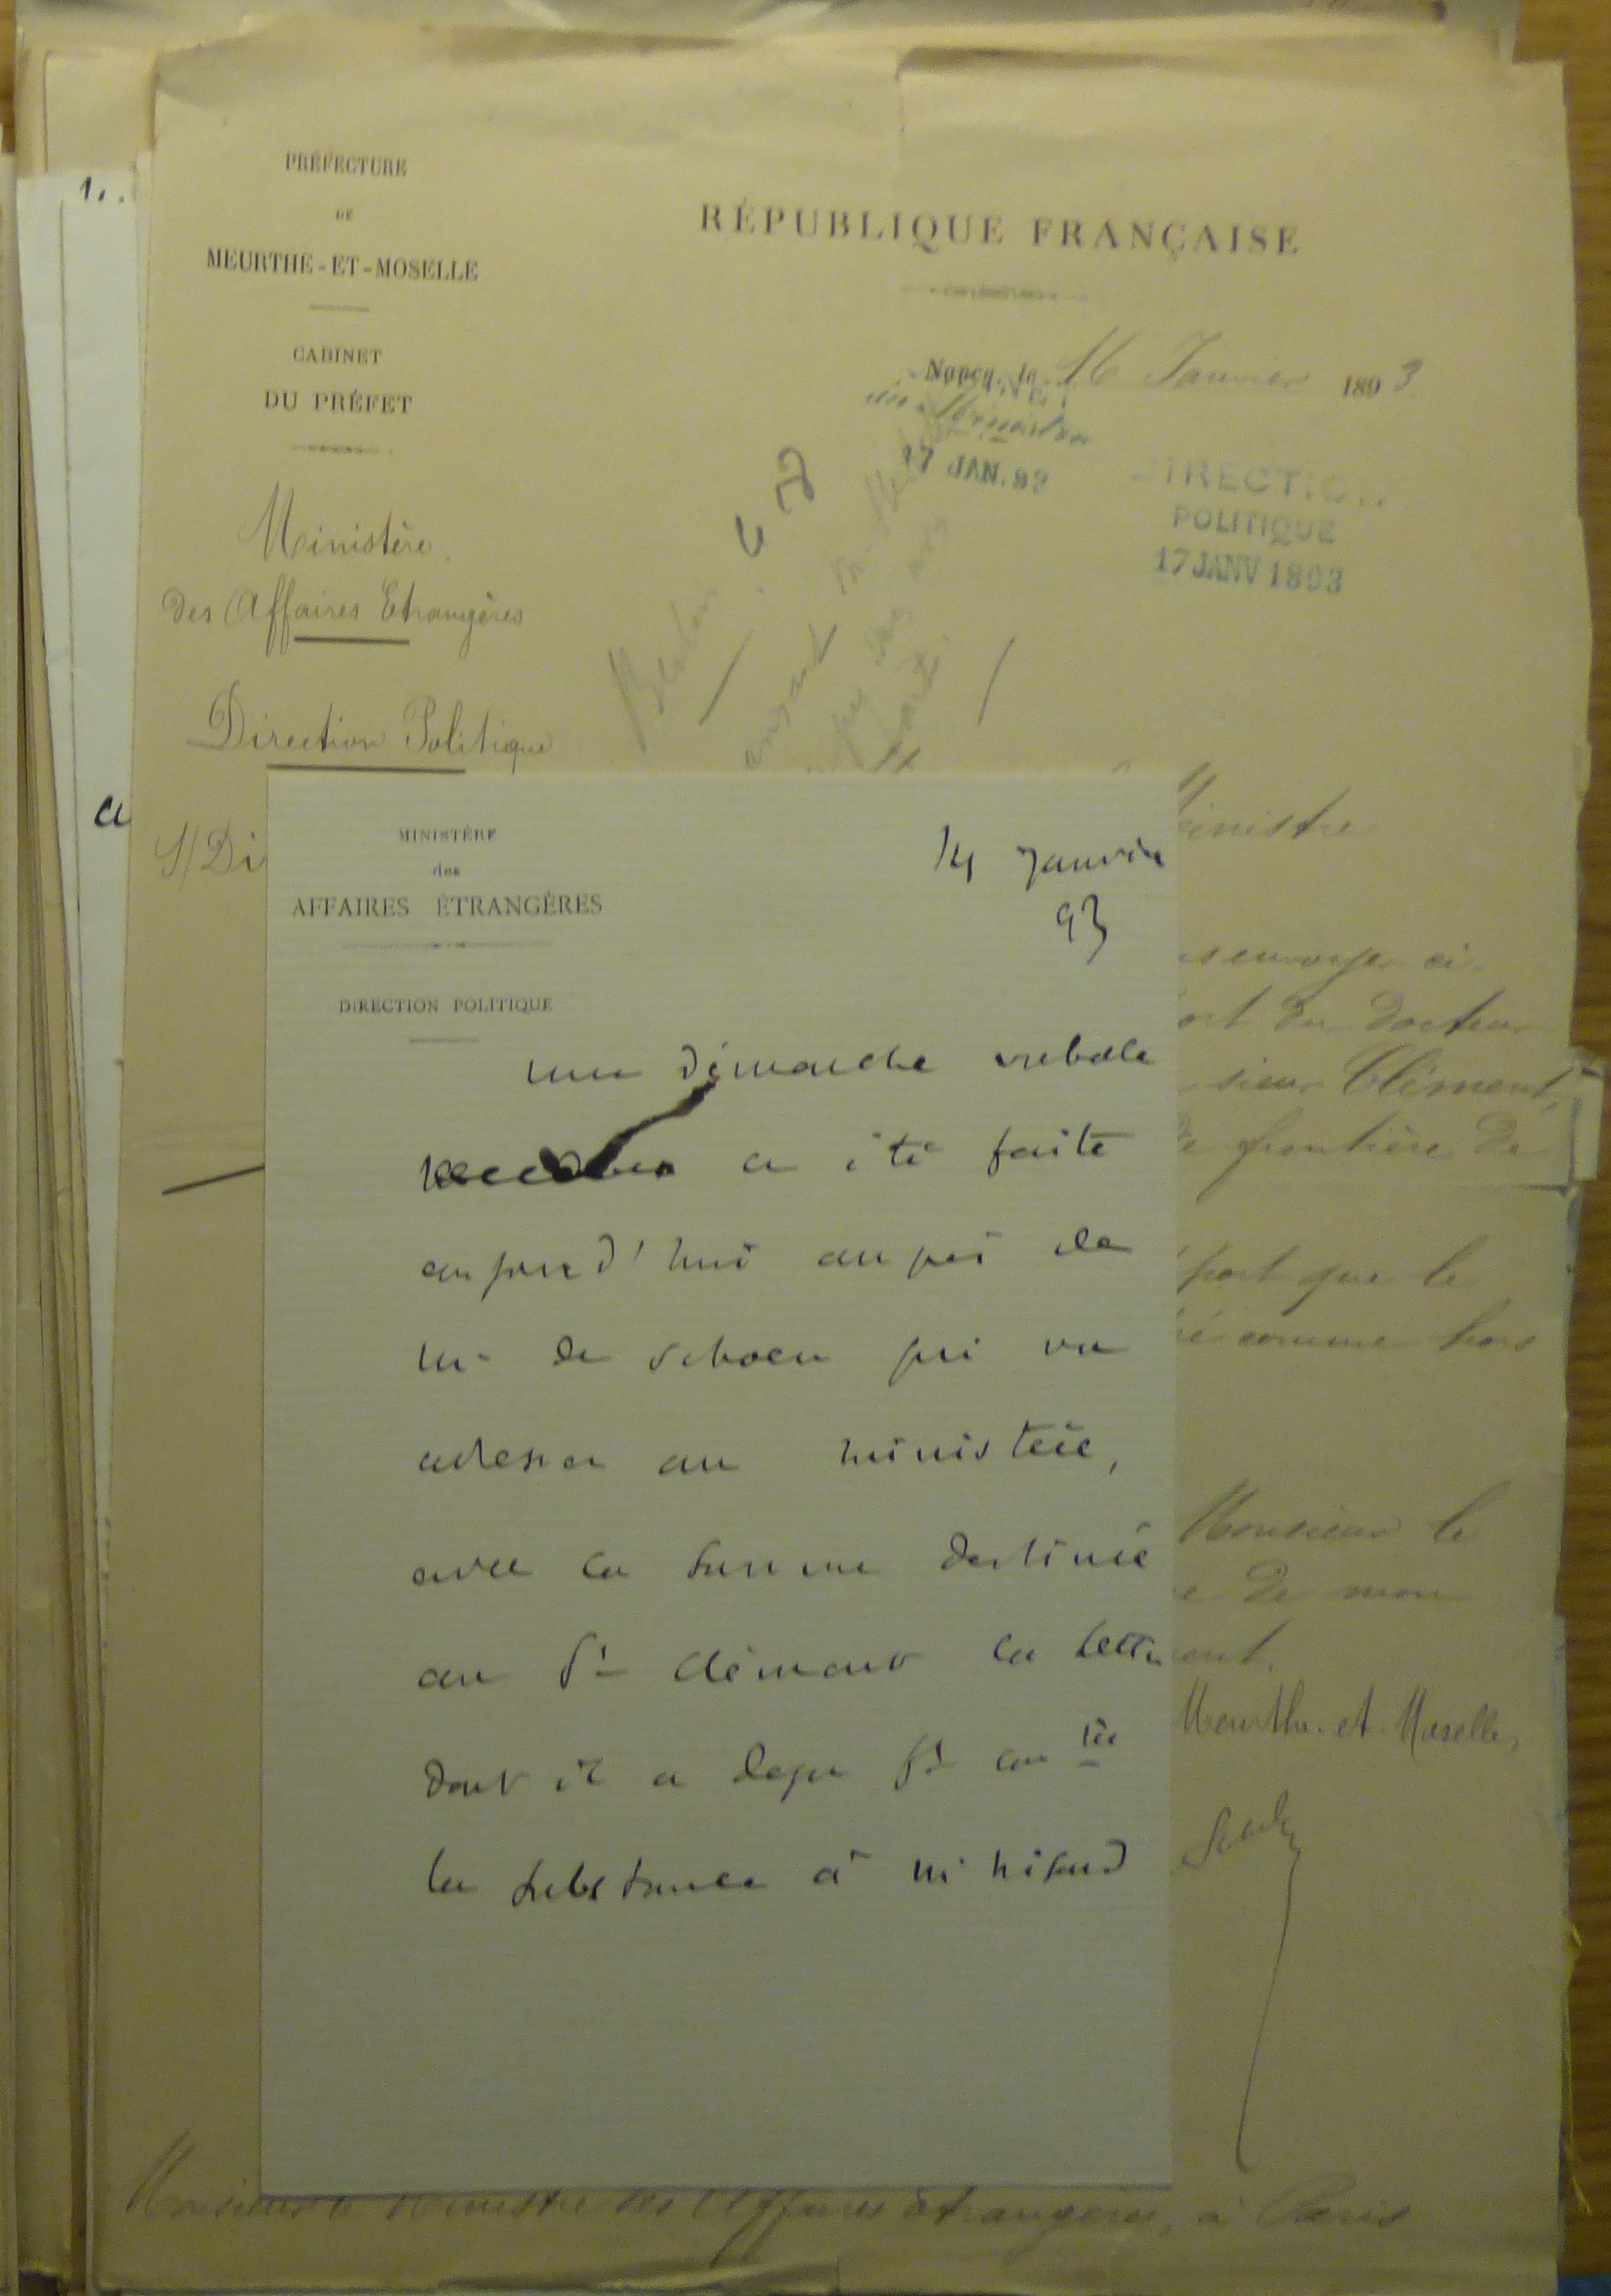 1..
a
PRÉFECTURE
DE
MEURTHE-ET-MOSELLE
CABINET
DU PRÉFET
RÉPUBLIQUE FRANÇAISE
Nancy, le 16 Janvier 1893
17 JAN. 93
DIRECTION
POLITIQUE
17 JANV 1893
Ministère
des Affaires Etrangères
Direction Politique
S/Di
inistre
MINISTÈRE
des
AFFAIRES ÉTRANGÈRES
DIRECTION POLITIQUE
14 Janvier
93
une démarche verbale
a été faite
aujourd'hui auprès de
M. de Schoen qui va
adresser au ministère,
avec la somme destinée
au Sr Clément la lettre
dont il a déjà
la substance à M. Nisard
envoyer ci-
ort du docteur
sieur Clément,
frontière de
port que le
é comme hors
Monsieur le
e de mon
ent.
Meurthe-et-Moselle,
Monsieur le Ministre des Affaires étrangères, à Paris